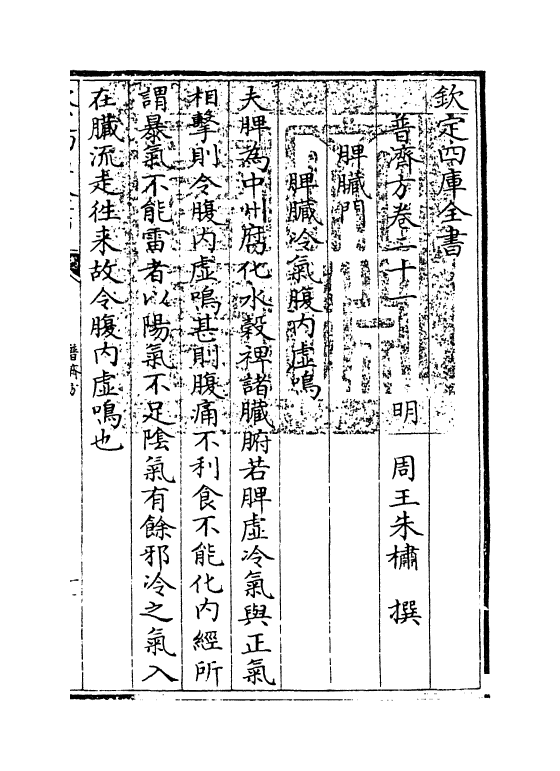 欽定四庫全書
普濟方卷二十一　明　周王朱橚　撰
脾臟門
脾臟冷氣腹内虛鳴
夫脾為中州腐化水穀禆諸臟腑若脾虛冷氣與正氣
相擊則令腹内虛鳴甚則腹痛不利食不能化内經所
謂暴氣不能雷者以陽氣不足隂氣有餘邪冷之氣入
在臟流走徃来故令腹内虛鳴也
普濟方